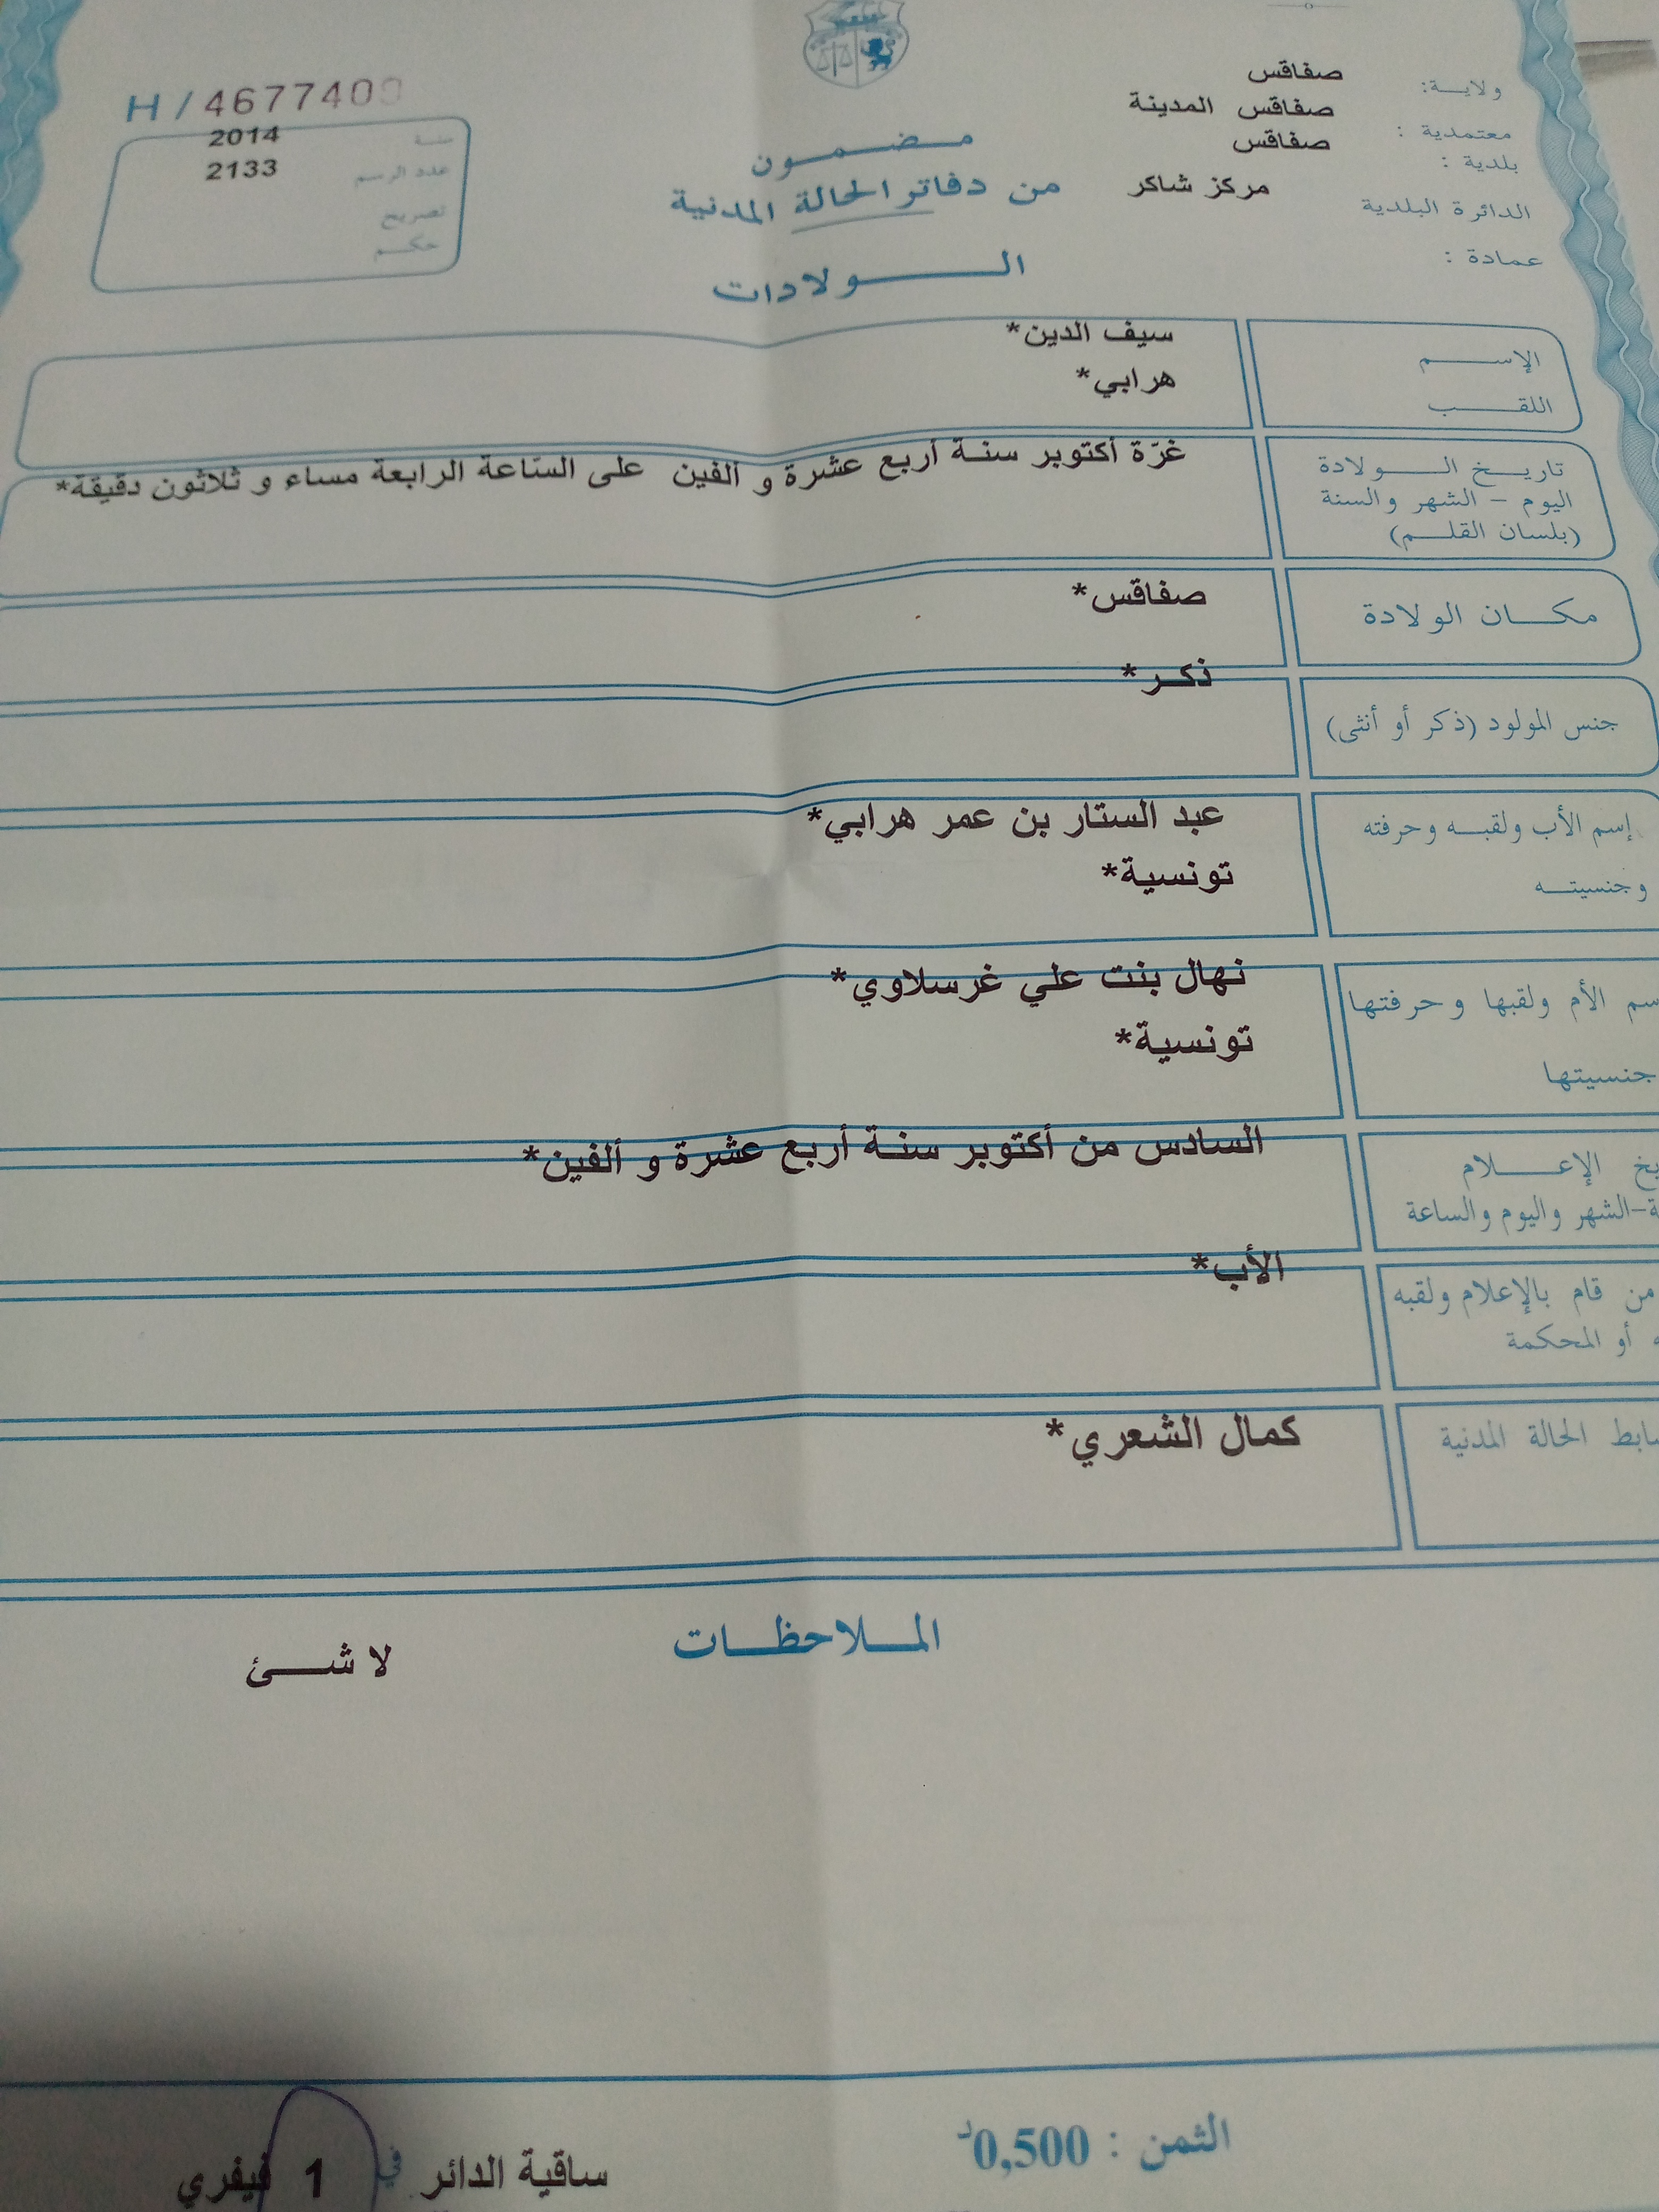 ولاية: صفاقس
معتمدية : صفاقس المدينة
بلدية : صفاقس
الدائرة البلدية مركز شاكر
عمادة :
H / 467740
سنة 2014
عدد الرسم 2133
تصريح
حكم
مضمون
من دفاتر الحالة المدنية
الولادات
الإسم سيف الدين*
اللقب هرابي*
تاريخ الولادة غرّة أكتوبر سنة أربع عشرة و ألفين على السّاعة الرابعة مساء و ثلاثون دقيقة*
اليوم - الشهر والسنة
(بلسان القلم)
مكان الولادة صفاقس*
جنس المولود (ذكر أو أنثى) ذكر*
إسم الأب ولقبه وحرفته عبد الستار بن عمر هرابي*
وجنسيته تونسية*
سم الأم ولقبها وحرفتها نهال بنت علي غرسلاوي*
جنسيتها تونسية*
يخ الإعلام السادس من أكتوبر سنة أربع عشرة و ألفين*
ة-الشهر واليوم والساعة
من قام بالإعلام ولقبه الأب*
ه أو المحكمة
ضابط الحالة المدنية كمال الشعري*
الملاحظات
لا شئ
الثمن : 0,500د
ساقية الدائر في 1 فيفري